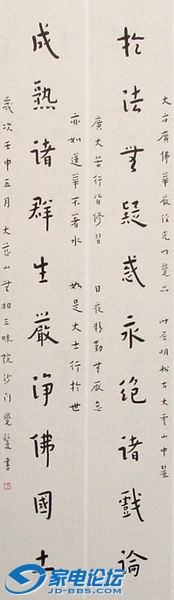 大方廣佛華嚴經光明覺品
於法無疑惑永絕諸戲論
廣大苦行皆修習 日夜精勤無厭怠
亦如蓮華不著水 如是大士行於世
成熟諸群生嚴淨佛國土
歲次壬申五月大慈山無相三昧院沙門覺書
家电论坛
JD-BBS.COM